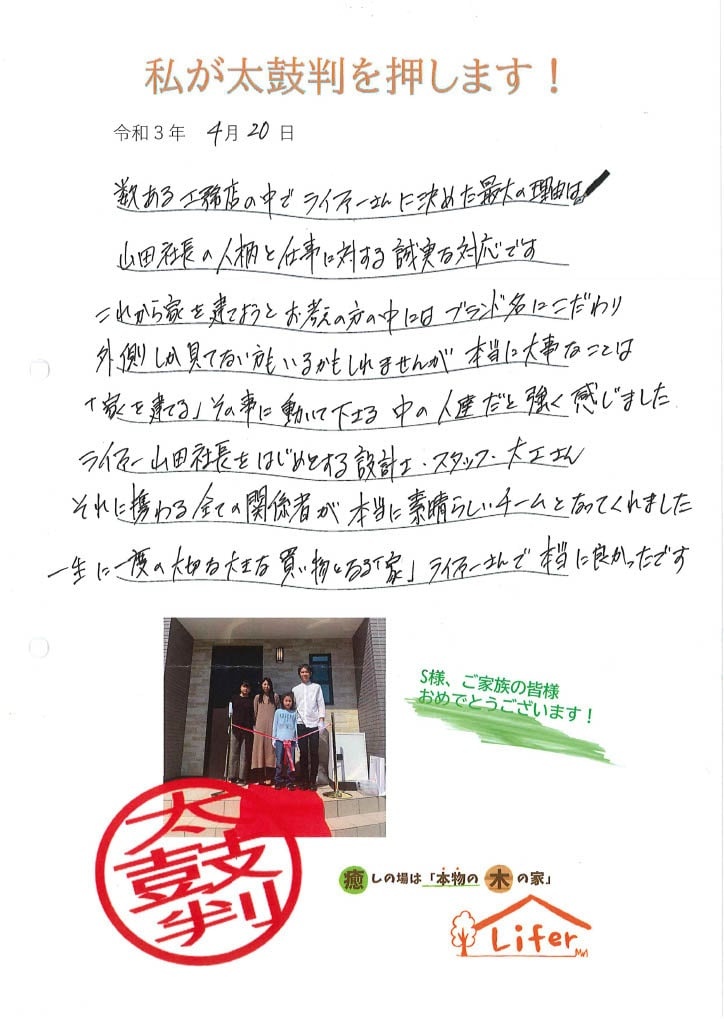 私が太鼓判を押します！
令和３年 4月 20 日
数ある工務店の中でライファーさんに決めた最大の理由は
山田社長の人柄と仕事に対する誠実な対応です
これから家を建てようとお考えの方の中にはブランド名にこだわり
外側しか見てない方もいるかもしれませんが 本当に大事なことは
「家を建てる」その事に動いて下さる 中の人達だと強く感じました
ライファー山田社長をはじめとする設計士・スタッフ・大工さん
それに携わる全ての関係者が 本当に素晴らしいチームとなってくれました
一生に一度の大切な大きな買い物となる「家」ライファーさんで本当に良かったです
S様、ご家族の皆様
おめでとうございます！
太
鼓
判
癒しの場は「本物の木の家」
Lifer